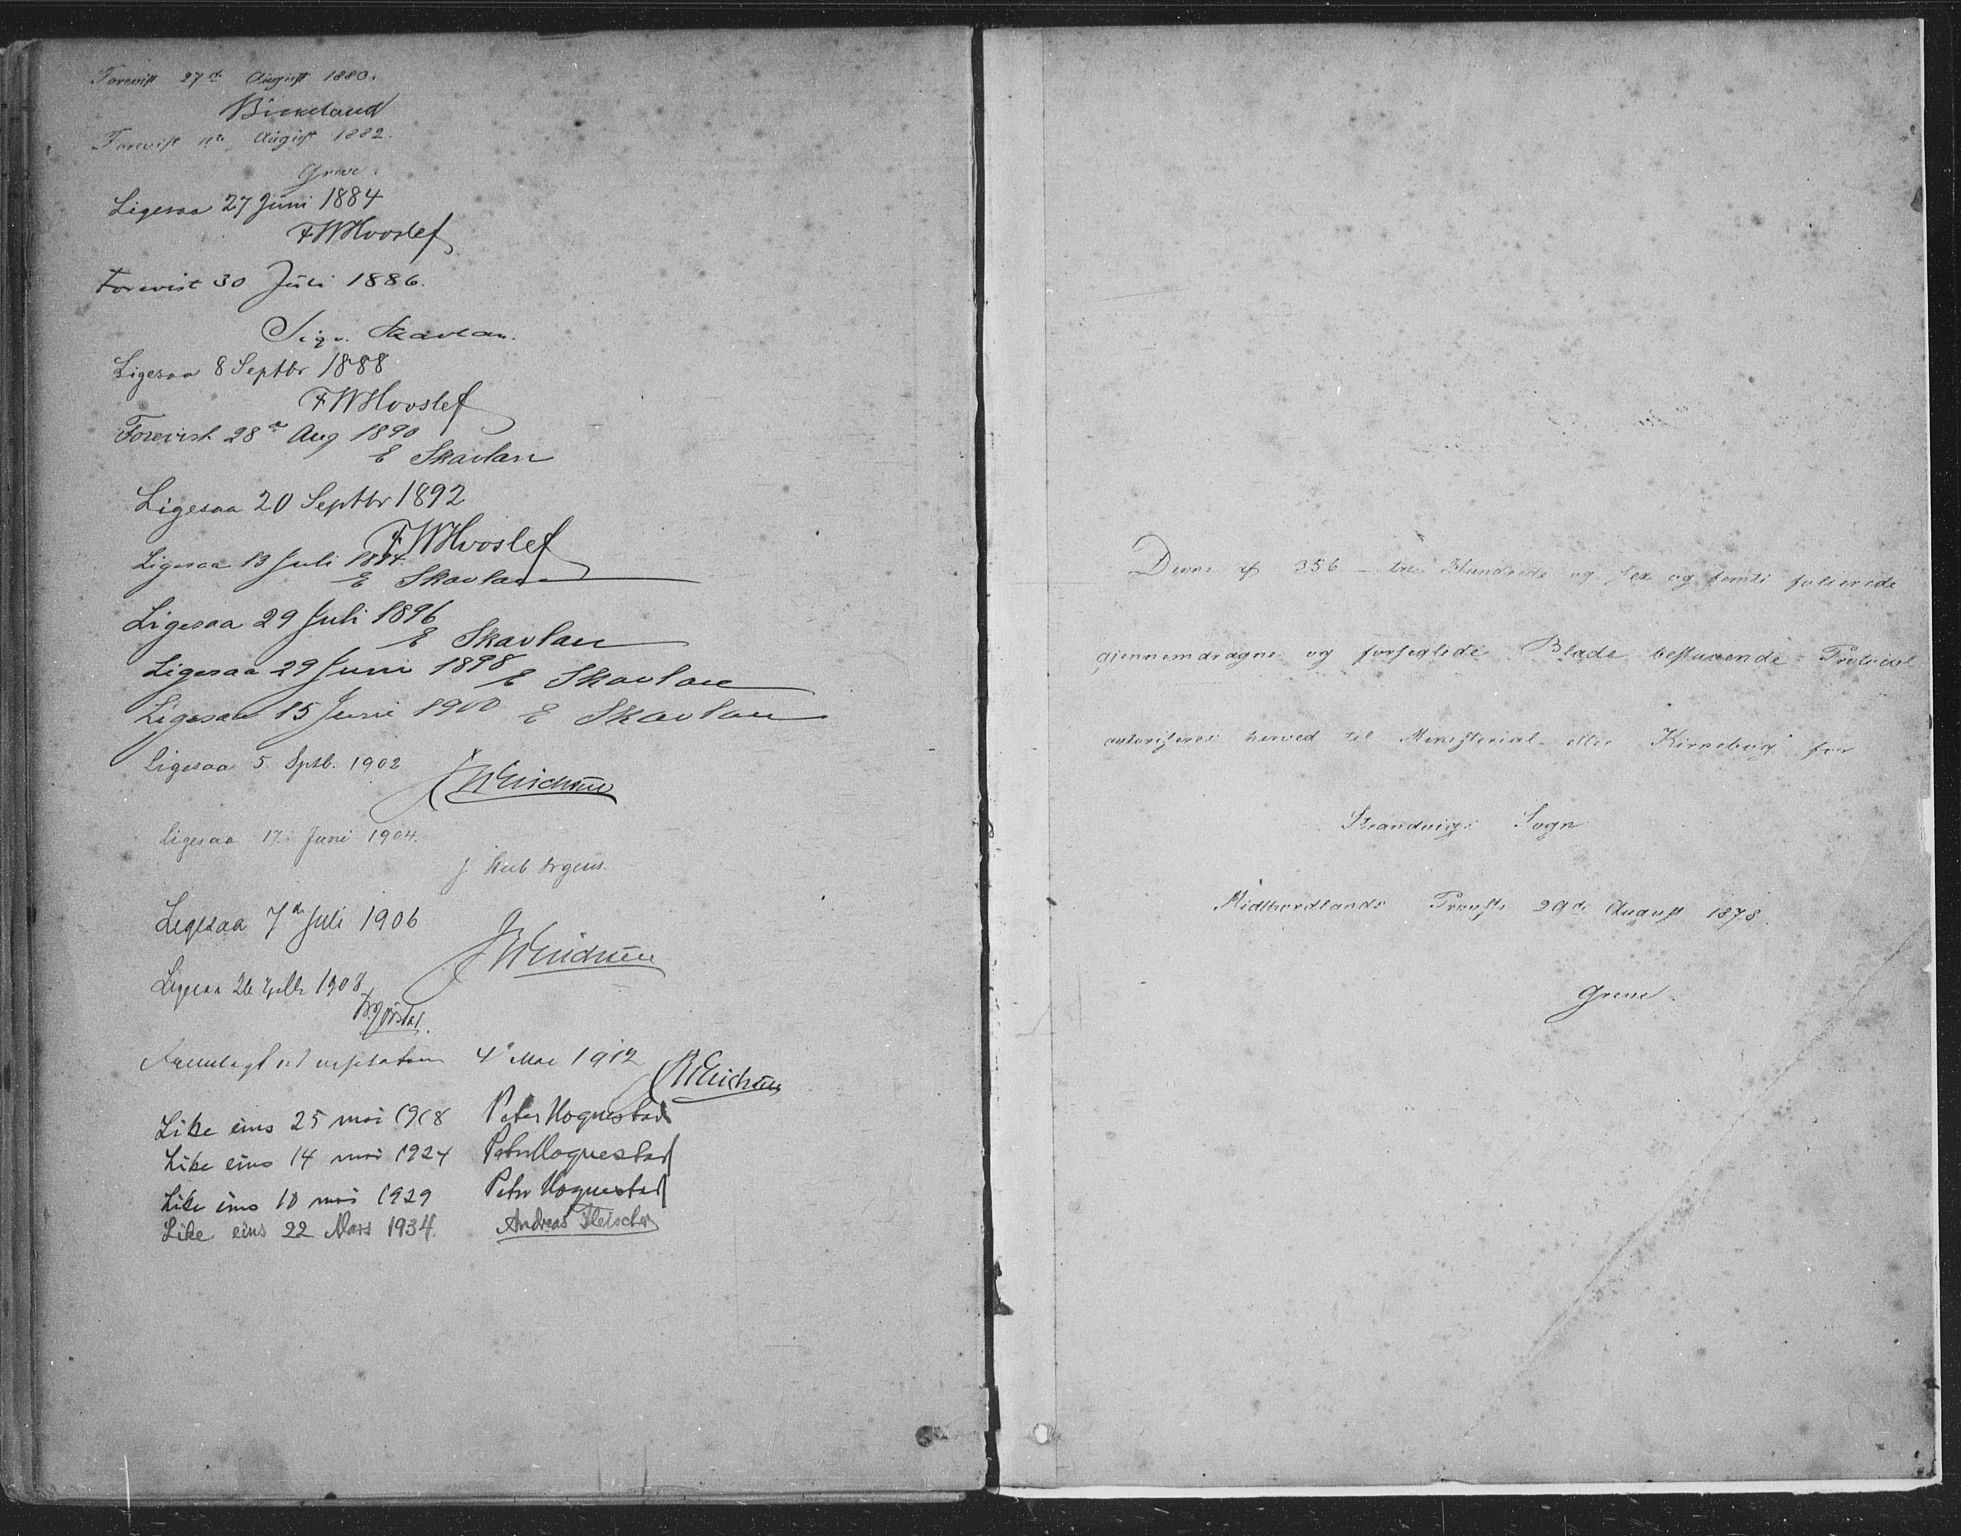 Forevist 27de August 1880.
Birkeland
Forevist August 1882.
Greve.
Ligesaa 27 Juni 1884
FWHvoslef
Forevist 30 Juli 1886.
Sigv. Skavlan.
Ligesaa 8 Septbr 1888
FWHvoslef
Forevist 28de Aug 1890
E Skavlan
Ligesaa 20 Septbr 1892
FWHvoslef
Ligesaa 13 Juli 1894.
E Skavlan
Ligesaa 29 Juli 1896
E Skavlan
Ligesaa 29 Juni 1898 E Skavlan
Ligesaa 15 Juni 1900 E Skavlan
Ligesaa 5. Septb. 1902
Ligesaa 17. Juni 1904.
Ligesaa 7de Juli 1906
Ligesaa 26 1908
Fremlagt til visitation 4de Mai 1912
Like eins 25 mai 1918 Peter Hognestad
Like eins 14 mai 1924 Peter Hognestad
Like eins 10 mai 1929 Peter Hognestad
Like eins 22 Mars 1934. Andreas Fleischer
Denne af 356 – tre Hundrede og sex og femti folierede
gjennemdragne og forseglede Blade bestaaende Protocol
autoriseres herved til Ministerial- eller Kirkebog for
Strandvigs Sogn
Midthordlands Provsti 29de August 1878.
Greve.